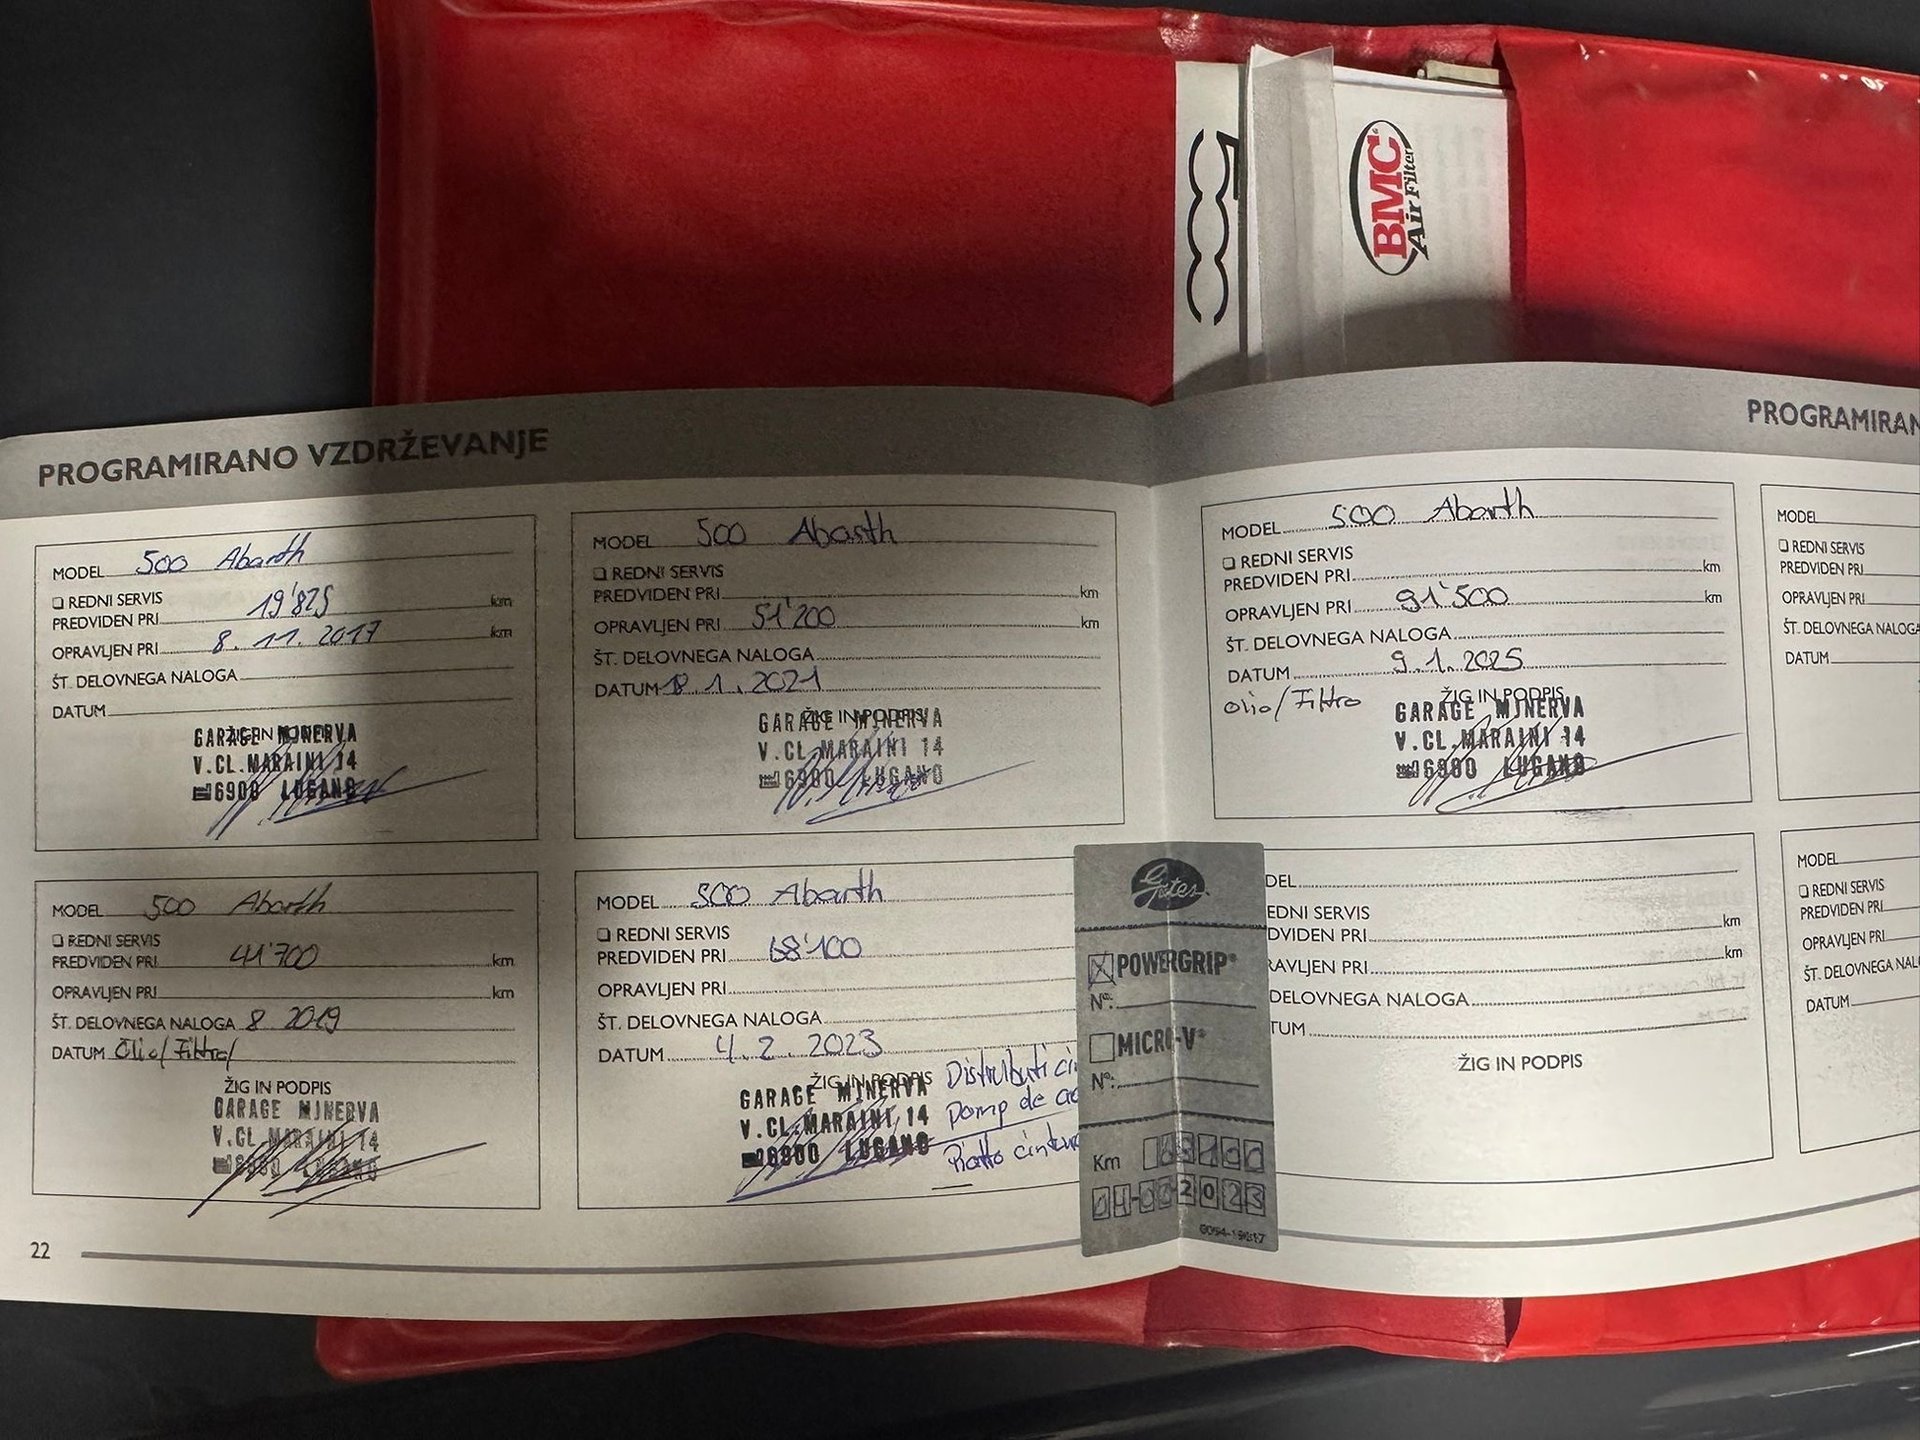 500
BMC
Air Filter
PROGRAMIRANO VZDRŽEVANJE
MODEL 500 Abarth
REDNI SERVIS
PREDVIDEN PRI 19'825 km
OPRAVLJEN PRI 8.11.2017 km
ŠT. DELOVNEGA NALOGA
DATUM
ŽIG IN PODPIS
GARAGE MINERVA
V.CL.MARAINI 14
6900 LUGANO
MODEL 500 Abarth
REDNI SERVIS
PREDVIDEN PRI 41'700 km
OPRAVLJEN PRI km
ŠT. DELOVNEGA NALOGA 8 2019
DATUM Olio/Filtro/
ŽIG IN PODPIS
GARAGE MINERVA
V.CL.MARAINI 14
6900 LUGANO
22
MODEL 500 Abarth
REDNI SERVIS
PREDVIDEN PRI km
OPRAVLJEN PRI 51'200 km
ŠT. DELOVNEGA NALOGA
DATUM 18.1.2021
ŽIG IN PODPIS
GARAGE MINERVA
V.CL.MARAINI 14
6900 LUGANO
MODEL 500 Abarth
REDNI SERVIS
PREDVIDEN PRI 68'100
OPRAVLJEN PRI
ŠT. DELOVNEGA NALOGA
DATUM 4.2.2023
ŽIG IN PODPIS
GARAGE MINERVA
V.CL.MARAINI 14
6900 LUGANO
Pomp de
Gates
POWERGRIP®
N°:
MICRO-V®
N°:
Km
2023
PROGRAMIRAN
MODEL 500 Abarth
REDNI SERVIS
PREDVIDEN PRI km
OPRAVLJEN PRI 91'500 km
ŠT. DELOVNEGA NALOGA
DATUM 9.1.2025
Olio/Filtro
ŽIG IN PODPIS
GARAGE MINERVA
V.CL.MARAINI 14
6900 LUGANO
DEL
EDNI SERVIS
DVIDEN PRI km
RAVLJEN PRI km
DELOVNEGA NALOGA
TUM
ŽIG IN PODPIS
MODEL
REDNI SERVIS
PREDVIDEN PRI
OPRAVLJEN PRI
ŠT. DELOVNEGA NALOGA
DATUM
MODEL
REDNI SERVIS
PREDVIDEN PRI
OPRAVLJEN PRI
ŠT. DELOVNEGA NAL
DATUM